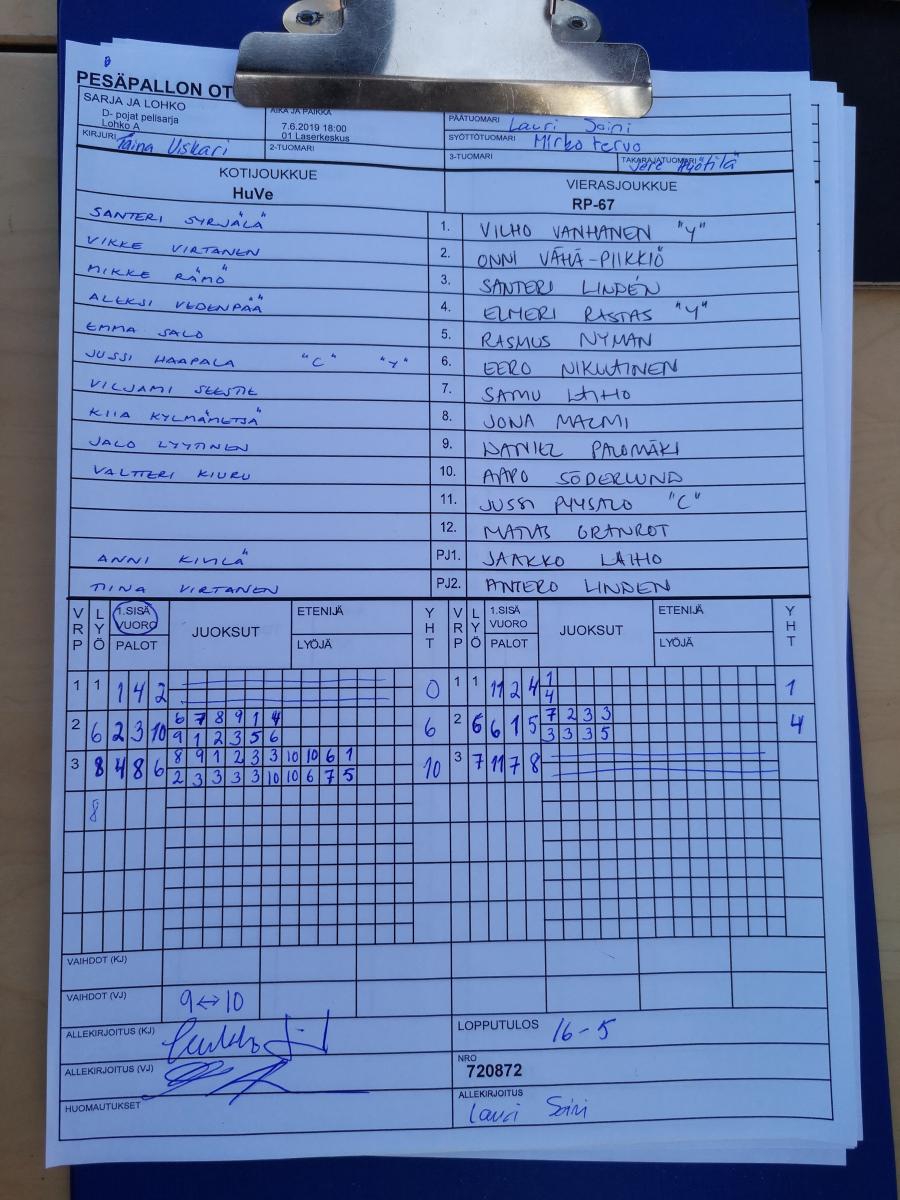 PESÄPALLON OT
SARJA JA LOHKO
D- pojat pelisarja
Lohko A
AIKA JA PAIKKA
7.6.2019 18:00
01 Laserkeskus
PÄÄTUOMARI Lauri Soini
SYÖTTÖTUOMARI Mirko Tervo
KIRJURI Taina Uskari
2-TUOMARI
3-TUOMARI
TAKARAJATUOMARI Jere Hyötilä
KOTIJOUKKUE
HuVe
VIERASJOUKKUE
RP-67
SANTERI SYRJÄLÄ 1. VILHO VANHANEN "Y"
VIKKE VIRTANEN 2. ONNI VÄHÄ-PIIKKIÖ
MIKKE RÄMÖ 3. SANTERI LINDÉN
ALEKSI VEDENPÄÄ 4. ELMERI RASTAS "Y"
EMMA SALO 5. RASMUS NYMAN
JUSSI HAAPALA "C" "Y" 6. EERO NIKULAINEN
VILJAMI SEESTIE 7. SAMU LAIHO
KIIA KYLMÄMETSÄ 8. JONA MALMI
JALO LYYTINEN 9. DANIEL PALOMÄKI
VALTTERI KIURU 10. AAPO SÖDERLUND
11. JUSSI PYYSALO "C"
12. MATIAS GRANROT
ANNI KIVILÄ PJ1. JAAKKO LAIHO
TIINA VIRTANEN PJ2. ANTERO LINDEN
VRP LYÖ 1.SISÄ VUORO PALOT JUOKSUT ETENIJÄ LYÖJÄ YHT VRP LYÖ 1.SISÄ VUORO PALOT JUOKSUT ETENIJÄ LYÖJÄ YHT
1 1 1 4 2 0 1 1 11 2 4 1 1
4
2 6 2 3 10 6 7 8 9 1 4 6 2 6 6 1 5 7 2 3 3 4
9 1 2 3 5 6 3 3 3 5
3 8 4 8 6 8 9 1 2 3 3 10 10 6 1 10 3 7 11 7 8
2 3 3 3 3 10 10 6 7 5
8
VAIHDOT (KJ)
VAIHDOT (VJ) 9↔10
ALLEKIRJOITUS (KJ)
LOPPUTULOS 16-5
ALLEKIRJOITUS (VJ)
NRO
720872
HUOMAUTUKSET
ALLEKIRJOITUS
Lauri Soini